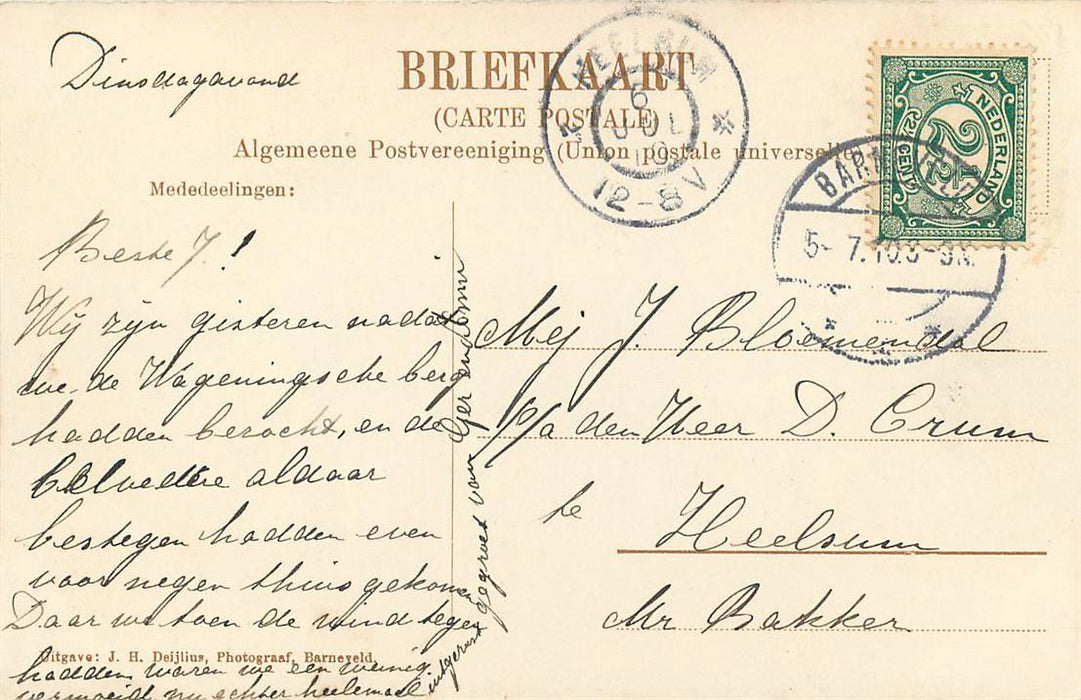 Dinsdagavond
BRIEFKAART
(CARTE POSTALE)
Algemeene Postvereeniging (Union postale universelle)
Mededeelingen:
HEELSUM
6 JUL 10
12-8V
BARNEVELD
5-7.10.8-9N.
NEDERLAND
2½
2½ CENT
Beste J!
Wij zijn gisteren nadat
we de Wageningsche berg
hadden bezocht, en de
belvedère aldaar
bestegen hadden even
voor negen thuis gekomen
Daar we toen de wind tegen
hadden waren we een weinig
vermoeid nu echter heelemaal
uitgerust gegroet van Ger en
Uitgave: J. H. Deijlius, Photograaf, Barneveld.
Mej J. Bloemendal
p/a den Heer D. Crum
te Heelsum
Mr Bakker